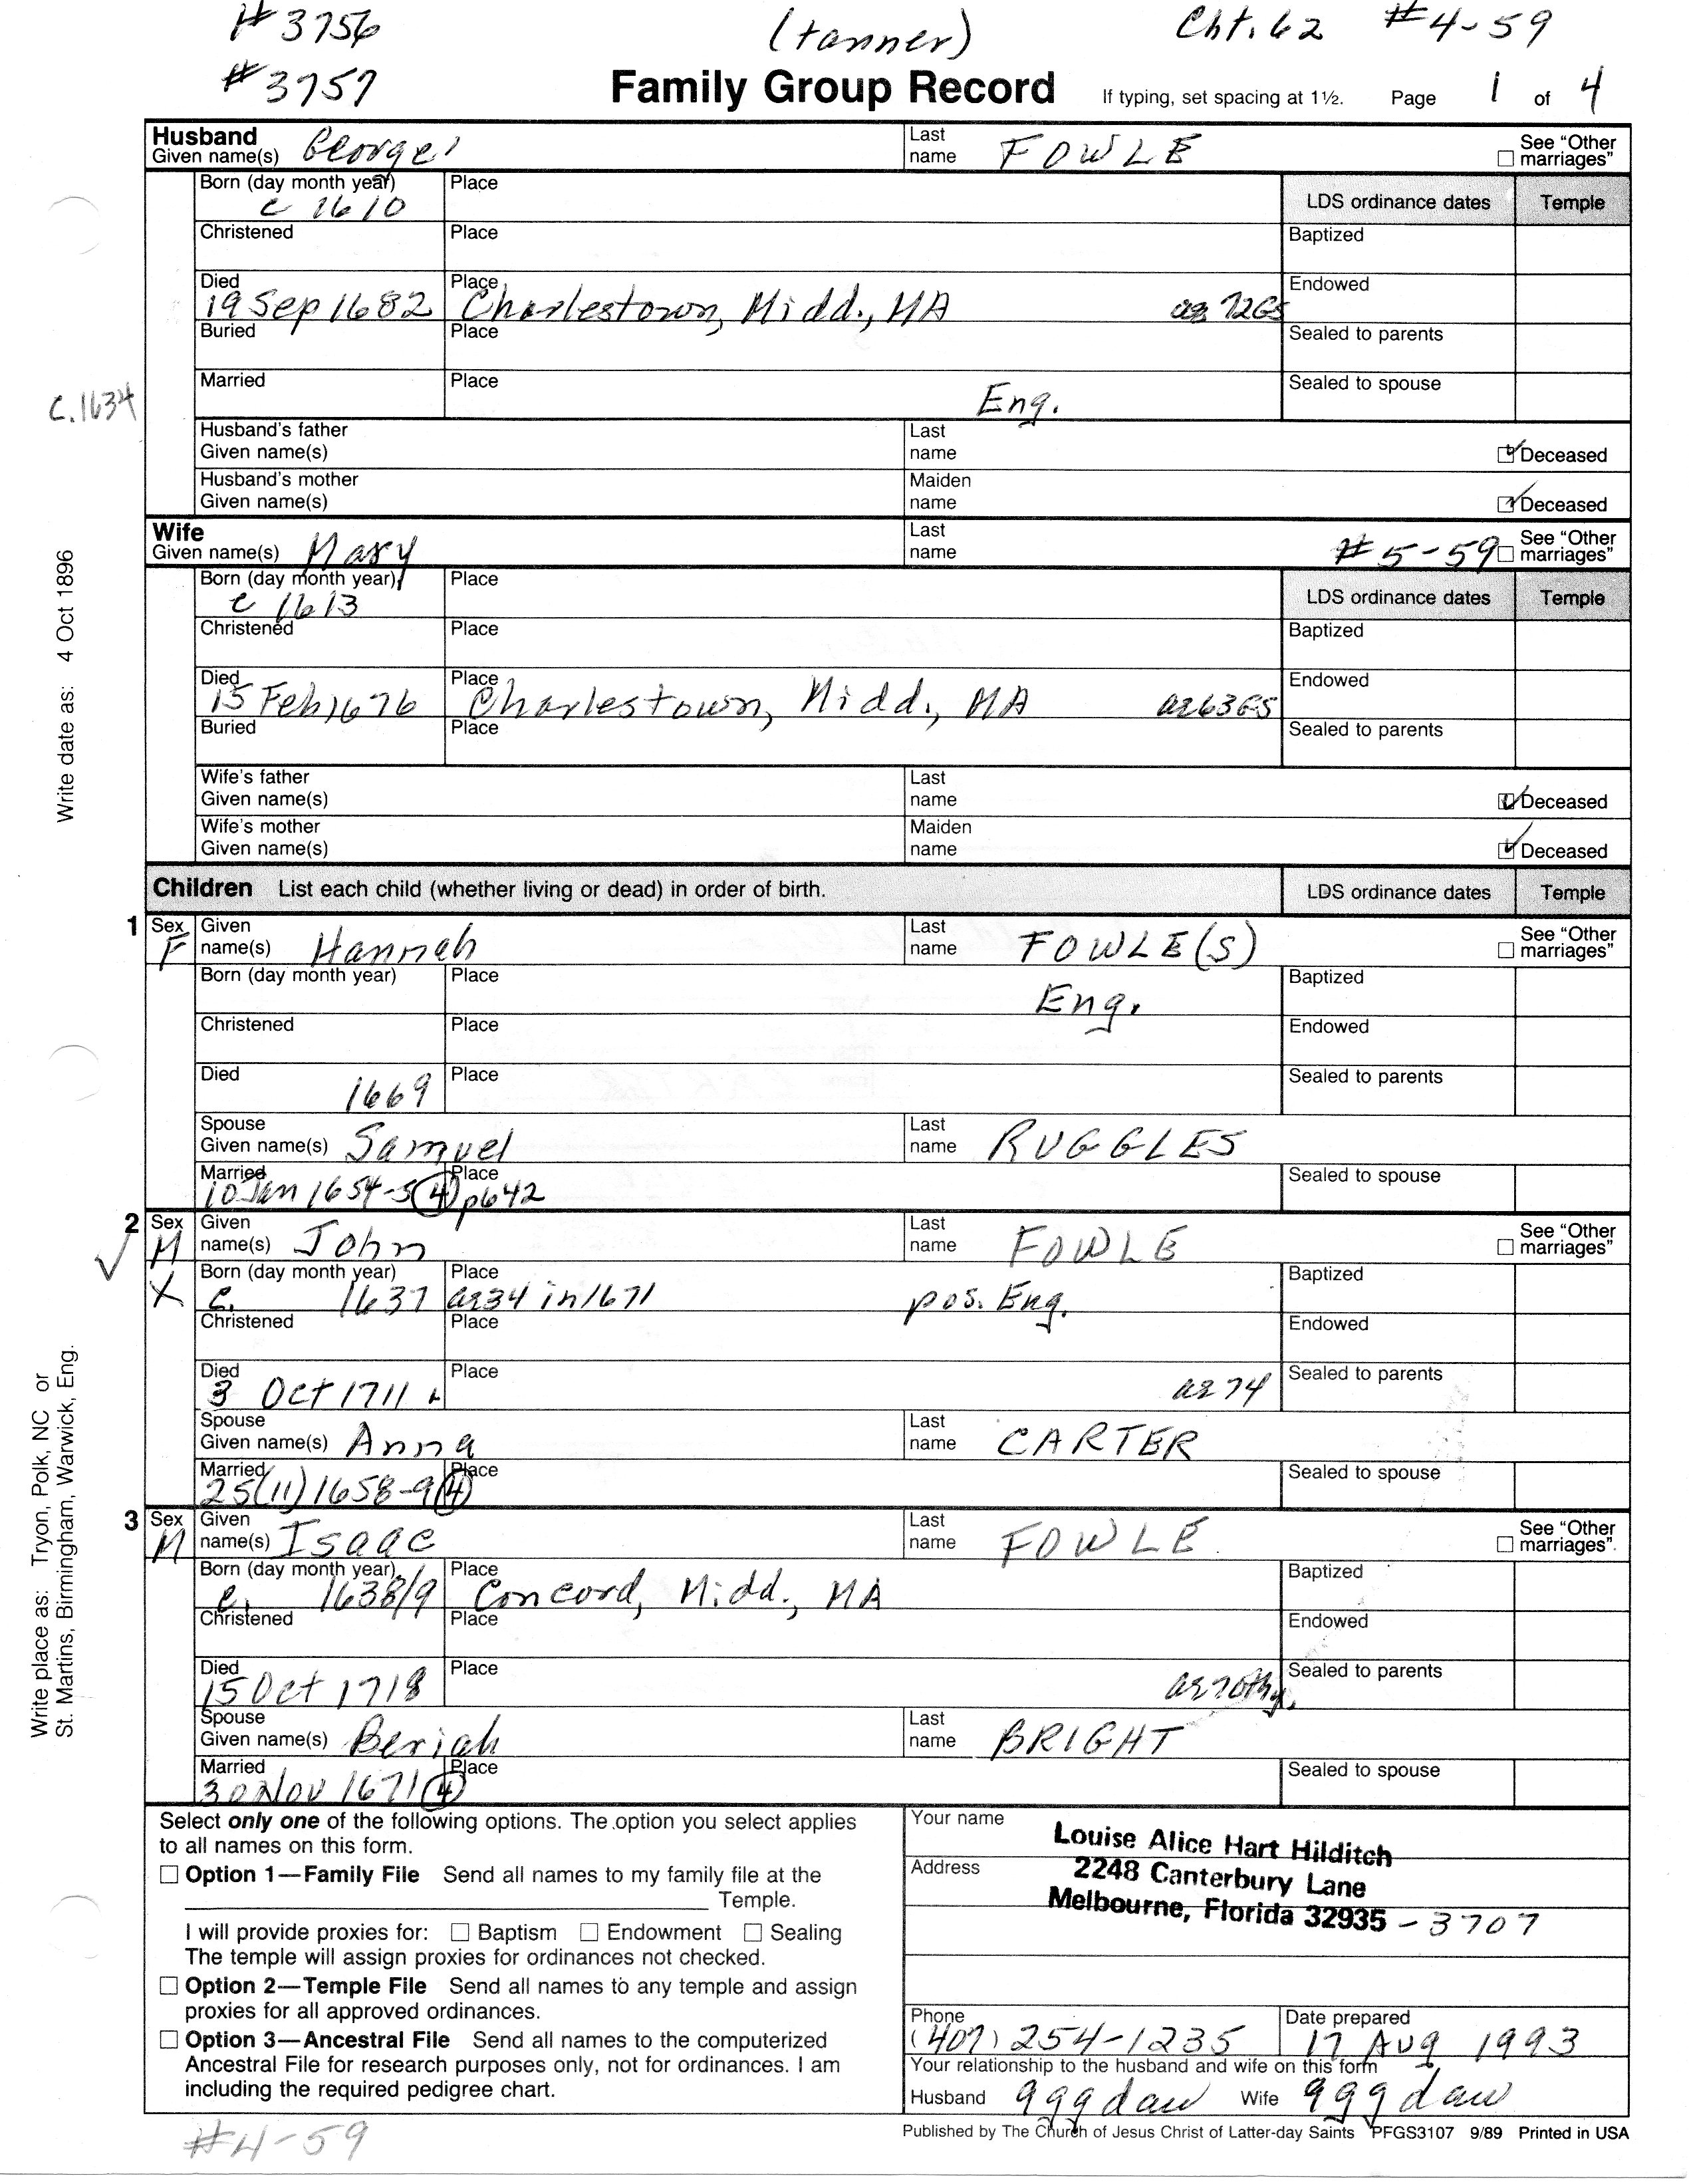 #3756 (tanner) Cht. 62 #4-59
#3757 Family Group Record If typing, set spacing at 1½. Page 1 of 4
Husband
Given name(s) George¹ Last name FOWLE See "Other marriages"
Born (day month year) c 1610 Place LDS ordinance dates Temple
Christened Place Baptized
Died 19 Sep 1682 Place Charlestown, Midd., MA ae 72GS Endowed
Buried Place Sealed to parents
c.1634 Married Place Eng. Sealed to spouse
Husband's father Given name(s) Last name Deceased
Husband's mother Given name(s) Maiden name Deceased
Wife
Given name(s) Mary Last name #5-59 See "Other marriages"
Born (day month year) c 1613 Place LDS ordinance dates Temple
Christened Place Baptized
Died 15 Feb 1676 Place Charlestown, Midd., MA ae63GS Endowed
Buried Place Sealed to parents
Wife's father Given name(s) Last name Deceased
Wife's mother Given name(s) Maiden name Deceased
Write date as: 4 Oct 1896
Children List each child (whether living or dead) in order of birth. LDS ordinance dates Temple
1 Sex F Given name(s) Hannah Last name FOWLE(S) See "Other marriages"
Born (day month year) Place Eng. Baptized
Christened Place Endowed
Died 1669 Place Sealed to parents
Spouse Given name(s) Samuel Last name RUGGLES
Married 10 Jan 1654-5 (4) Place p642 Sealed to spouse
2 Sex M Given name(s) John Last name FOWLE See "Other marriages"
X Born (day month year) c. 1637 Place ae34 in 1671 pos. Eng. Baptized
Christened Place Endowed
Died 3 Oct 1711 Place ae 74 Sealed to parents
Spouse Given name(s) Anna Last name CARTER
Married 25(11)1658-9 (4) Place Sealed to spouse
3 Sex M Given name(s) Isaac Last name FOWLE See "Other marriages".
Born (day month year) c. 1638/9 Place Concord, Midd., MA Baptized
Christened Place Endowed
Died 15 Oct 1718 Place Sealed to parents
Spouse Given name(s) Beriah Last name BRIGHT
Married 30 Nov 1671 (4) Place Sealed to spouse
Write place as: Tryon, Polk, NC or
St. Martins, Birmingham, Warwick, Eng.
Select only one of the following options. The option you select applies
to all names on this form.
Option 1—Family File Send all names to my family file at the
Temple.
I will provide proxies for: Baptism Endowment Sealing
The temple will assign proxies for ordinances not checked.
Option 2—Temple File Send all names to any temple and assign
proxies for all approved ordinances.
Option 3—Ancestral File Send all names to the computerized
Ancestral File for research purposes only, not for ordinances. I am
including the required pedigree chart.
Your name Louise Alice Hart Hilditch
Address 2248 Canterbury Lane
Melbourne, Florida 32935 - 3707
Phone (407) 254-1235 Date prepared 17 Aug 1993
Your relationship to the husband and wife on this form
Husband gggdau Wife gggdau
Published by The Church of Jesus Christ of Latter-day Saints PFGS3107 9/89 Printed in USA
#4-59